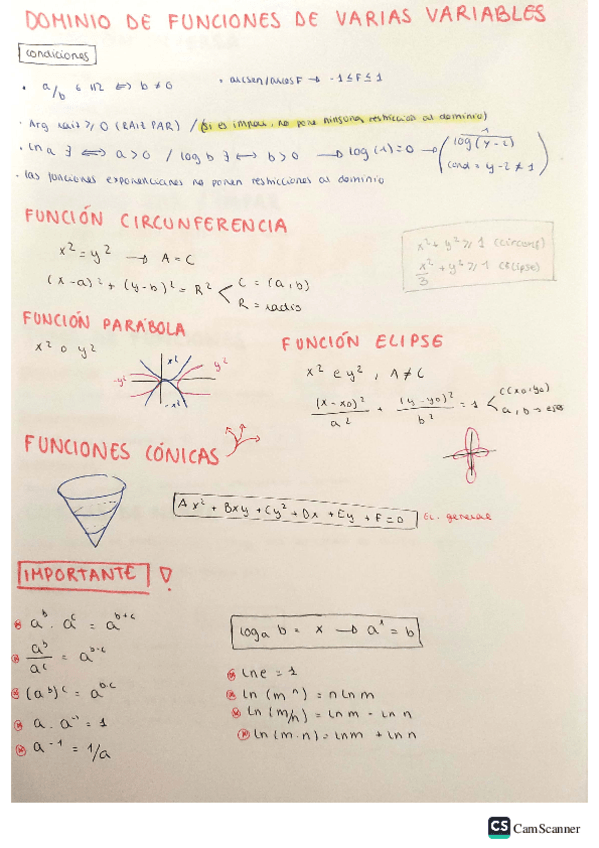 DOMINIO DE FUNCIONES DE VARIAS VARIABLES
condiciones
· a/b ∈ 112 ⟺ b ≠ 0
· arcsen/arcos F → -1 ≤ F ≤ 1
· Arg raiz ≥ 0 (RAIZ PAR) / (si es impar, no pone ninguna restriccion al dominio)
· Ln a ∃ ⟺ a > 0 / log b ∃ ⟺ b > 0 → log (1) = 0 → (1/log(y-2) cond = y-2 ≠ 1)
· las funciones exponenciales no ponen restricciones al dominio
FUNCIÓN CIRCUNFERENCIA
x² = y² → A = C
(x-a)² + (y-b)² = R² < C = (a, b)
R = radio
x² + y² ≥ 1 (circunf)
x²/3 + y² ≥ 1 (Elipse)
FUNCIÓN PARÁBOLA
x² o y²
x²
y²
-y²
-x²
FUNCIÓN ELIPSE
x² e y², A ≠ C
(x-x0)²/a² + (y-y0)²/b² = 1 < C(x0, y0)
a, b → ejes
FUNCIONES CÓNICAS
Ax² + Bxy + Cy² + Dx + Ey + F = 0 Ec. general
IMPORTANTE !
a^b · a^c = a^(b+c)
a^b/a^c = a^(b-c)
(a^b)^c = a^(bc)
a · a^-1 = 1
a^-1 = 1/a
loga b = x → a^x = b
ln e = 1
ln (m^n) = n ln m
ln (m/n) = ln m - ln n
ln (m·n) = ln m + ln n
CS CamScanner